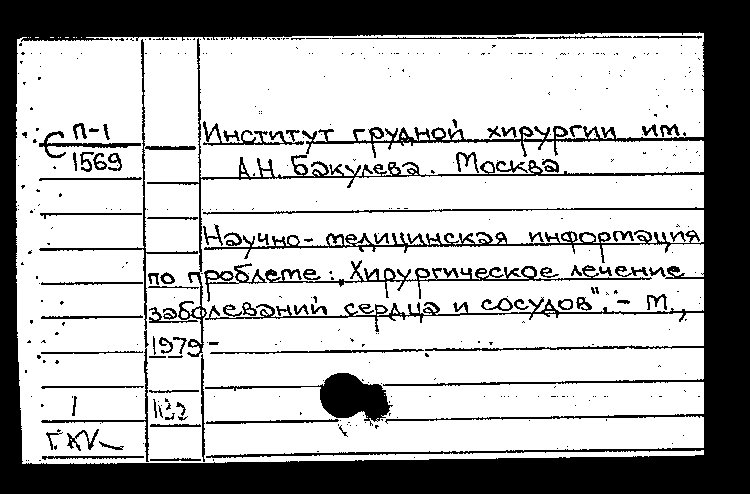 С П-1
1569
Институт грудной хирургии им.
А.Н. Бакулева. Москва.
Научно-медицинская информация
по проблеме: „Хирургическое лечение
заболеваний сердца и сосудов". - М.,
1979-
1